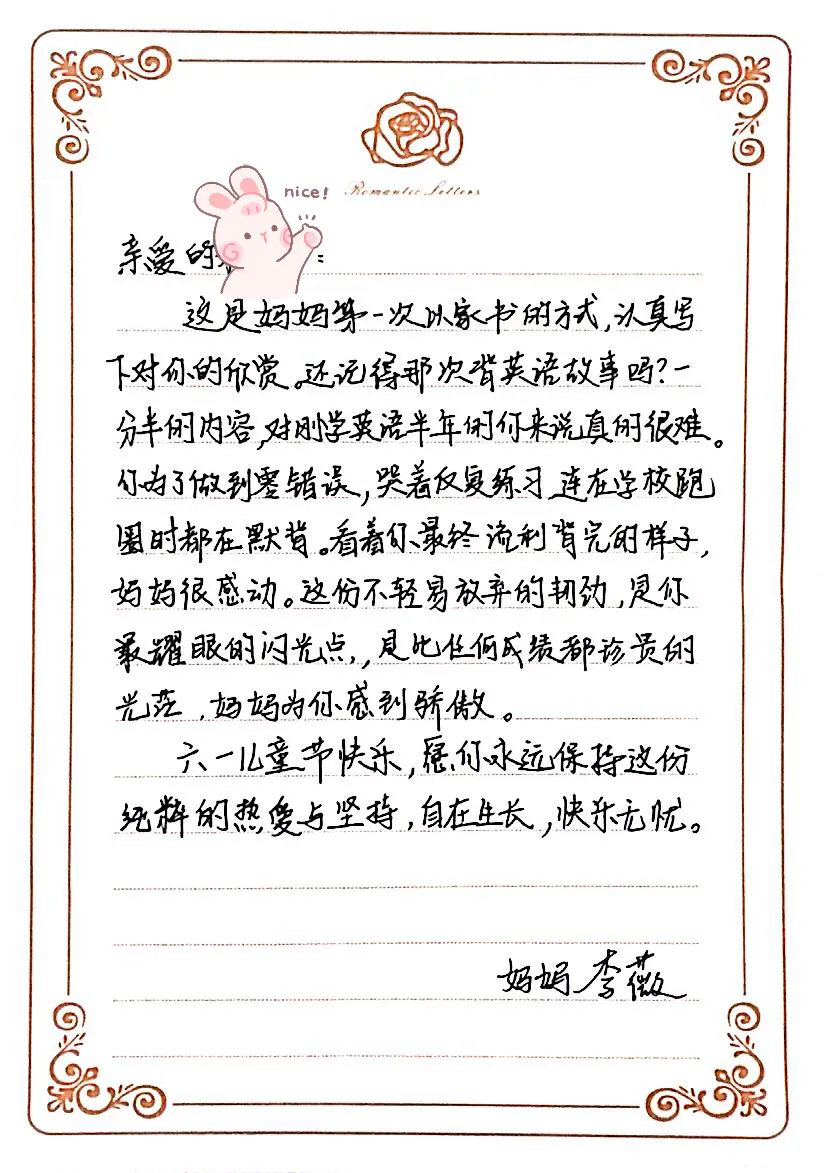 nice!
Romantic Letters
亲爱的:
这是妈妈第一次以家书的方式,认真写
下对你的欣赏。还记得那次背英语故事吗?一
分半的内容,对刚学英语半年的你来说真的很难。
你为了做到零错误,哭着反复练习,连在学校跑
圈时都在默背。看着你最终流利背完的样子,
妈妈很感动。这份不轻易放弃的韧劲,是你
最耀眼的闪光点,是比任何成绩都珍贵的
光芒,妈妈为你感到骄傲。
六一儿童节快乐,愿你永远保持这份
纯粹的热爱与坚持,自在生长,快乐无忧。
妈妈 李薇